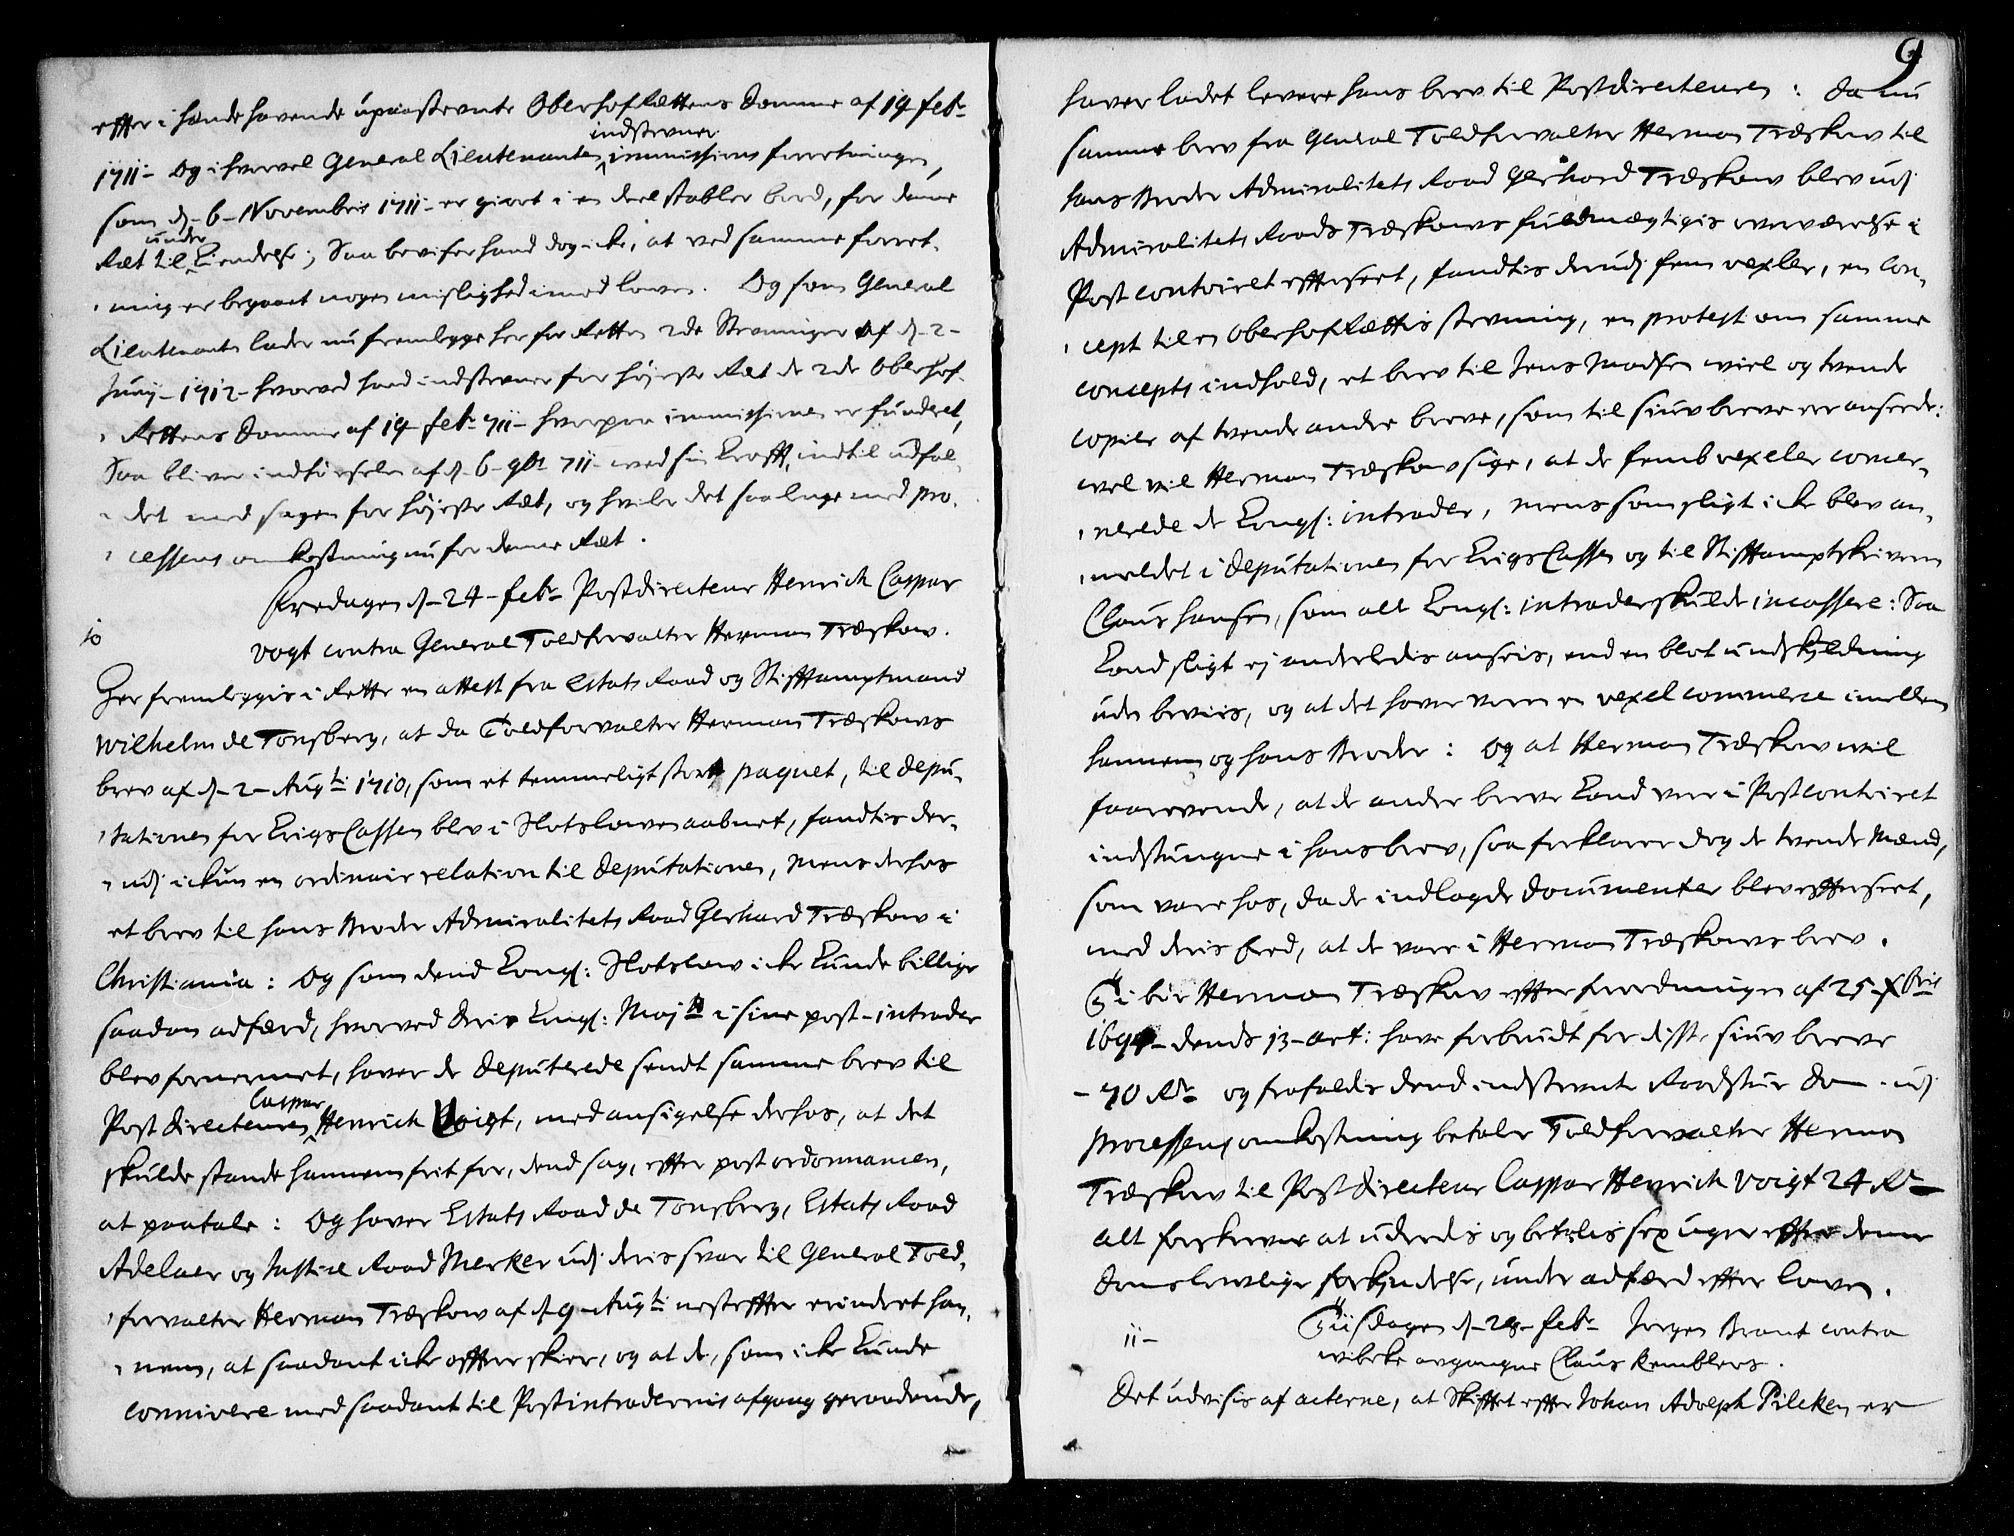 effter i hænde havende upaastevnte OberhofRættens Domme af 19 febr
1711 - Og ihvorvel General Lieutenanten indstevner immissions forretningen,
som d. 6 - Novembris 1711 - er giort i en deel stabler bord, for denne
Ræt til under Kiendelse; Saa beviser hand dog icke, at ved samme forret-
ning er begaaet nogen mislighed imod loven. Og som General
Lieutenanten lader nu fremlegge her for Retten 2de Stevninger af d. 2 -
Junij - 1712 - hvorved hand indstevner for høyeste Ræt de 2de Oberhof-
Rettens Domme af 19 febr 711 - hvorpaa immissionen er funderet,
Saa bliver indførselen af d. 6 - 9br 711 - ved sin Krafft, indtil udfal-
det med sagen for høyeste Ræt, og hviler det saa lenge med pro-
cessens omkostning nu for denne Ræt.
Fredagen d. 24 - febr Postdirecteur Henrich Caspar
10
Vogt contra General Toldforvalter Herman Træskow.
Her fremleggis i Rette en attest fra Estats Raad og Stifftamptmand
Wilhelm de Tonsberg, at da Toldforvalter Herman Træskows
brev af d. 2 - Augti 1710, som et temmeligt stort paquet, til depu-
tationen for KrigsCassen blev i Slotsloven aabnet, fandtis der-
udj ickun en ordinair relation til deputationen, mens derhos
et brev til hans Broder Admiralitets Raad Gerhard Træskow i
Christiania: Og som dend Kongl: Slotslow icke kunde billige
saadan adfærd, hvorved deris Kongl: Majts i sine post-intrader
blev fornermet, haver de deputerede sendt samme brev til
Postdirecteuren Caspar Henrich Voigt, med ansigelse derhos, at det
skulde stande hannem frit for, dend sag, effter postordonnancen,
at paatale: Og haver Estats Raad de Tonsberg, Estats Raad
Adelaer og Justice Raad Merker udj deris svar til General Told-
forvalter Herman Træskow af d. 9 - Augti nesteffter erindret han-
nem, at saadant icke offtere skeer, og at de, som icke kunde
connivere med saadant til Postintradernis afgang geraadende,
9
haver ladet levere hans brev til Postdirecteuren: Da nu
samme brev fra General Toldforvalter Herman Træskow til
hans Broder Admiralitets Raad Gerhard Træskow blev udj
Admiralitets Raads Træskows fuldmægtigis overværelse i
Postcontoiret effterseet, fandtis derudj fem vexler, en con-
cept til en OberhofRættis stevning, en protest om samme
concepts indhold, et brev til Jens Madsen Wiel og tvende
copier af tvende andre breve, som til siuv breve ere anseede:
vel vil Herman Træskow sige, at de femb vexeler concer-
nerede de Kongl: intrader, mens som sligt icke blev an-
meldet i deputationen for KrigsCassen og til Stifftamptskriveren
Claus Hansen, som alt Kongl: intrader skulde incassere: Saa
kand sligt ej anderledis ansees, end en blot undskyldning
uden beviis, og at det haver veret en vexel commerce imellem
hannem og hans Broder: Og at Herman Træskow vil
foarevende, at de andre breve kand vere i Postcontoiret
indstungne i hans brev, saa forklarer dog de tvende Mænd,
som vare hos, da de indlagde documenter blev effterseet,
med deris Eed, at de vare i Herman Træskows brev.
Thi bør Herman Træskow effter forordningen af 25 Xbris
1694 - dends 13 - art: have forbrudt for disse siuv breve
- 70 Rdr og frafaldis dend indstevnte Raadstue Dom. udj
Processens omkostning betaler Toldforvalter Herman
Træskow til Postdirecteur Caspar Henrich Voigt 24 Rdr
alt forskrevne at udredis og betalis sex uger effter denne
Doms lowlige forkyndelse, under adfærd effter loven.
11 -
Tiisdagen d. 28 - febr Jørgen Brant contra
Wibeke avgangne Claus Remblers.
Det udvisis af acterne, at Skifftet effter Johan Adolph Pileken er